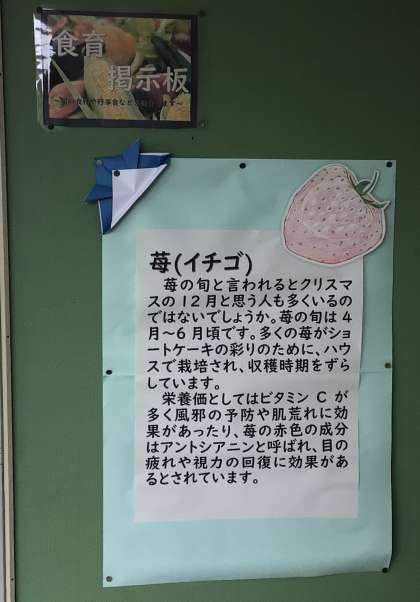 食育
掲示板
苺(イチゴ)
　苺の旬と言われるとクリスマ
スの12月と思う人も多くいるの
ではないでしょうか。苺の旬は4
月～6月頃です。多くの苺がショ
ートケーキの彩りのために、ハウ
スで栽培され、収穫時期をずら
しています。
　栄養価としてはビタミンCが
多く風邪の予防や肌荒れに効
果があったり、苺の赤色の成分
はアントシアニンと呼ばれ、目の
疲れや視力の回復に効果があ
るとされています。